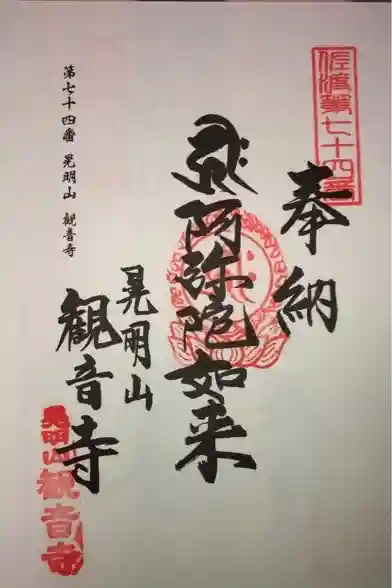 佐渡第七十四番
奉納
阿弥陀如来
晃明山
観音寺
第七十四番 晃明山 観音寺
晃明山
観音寺